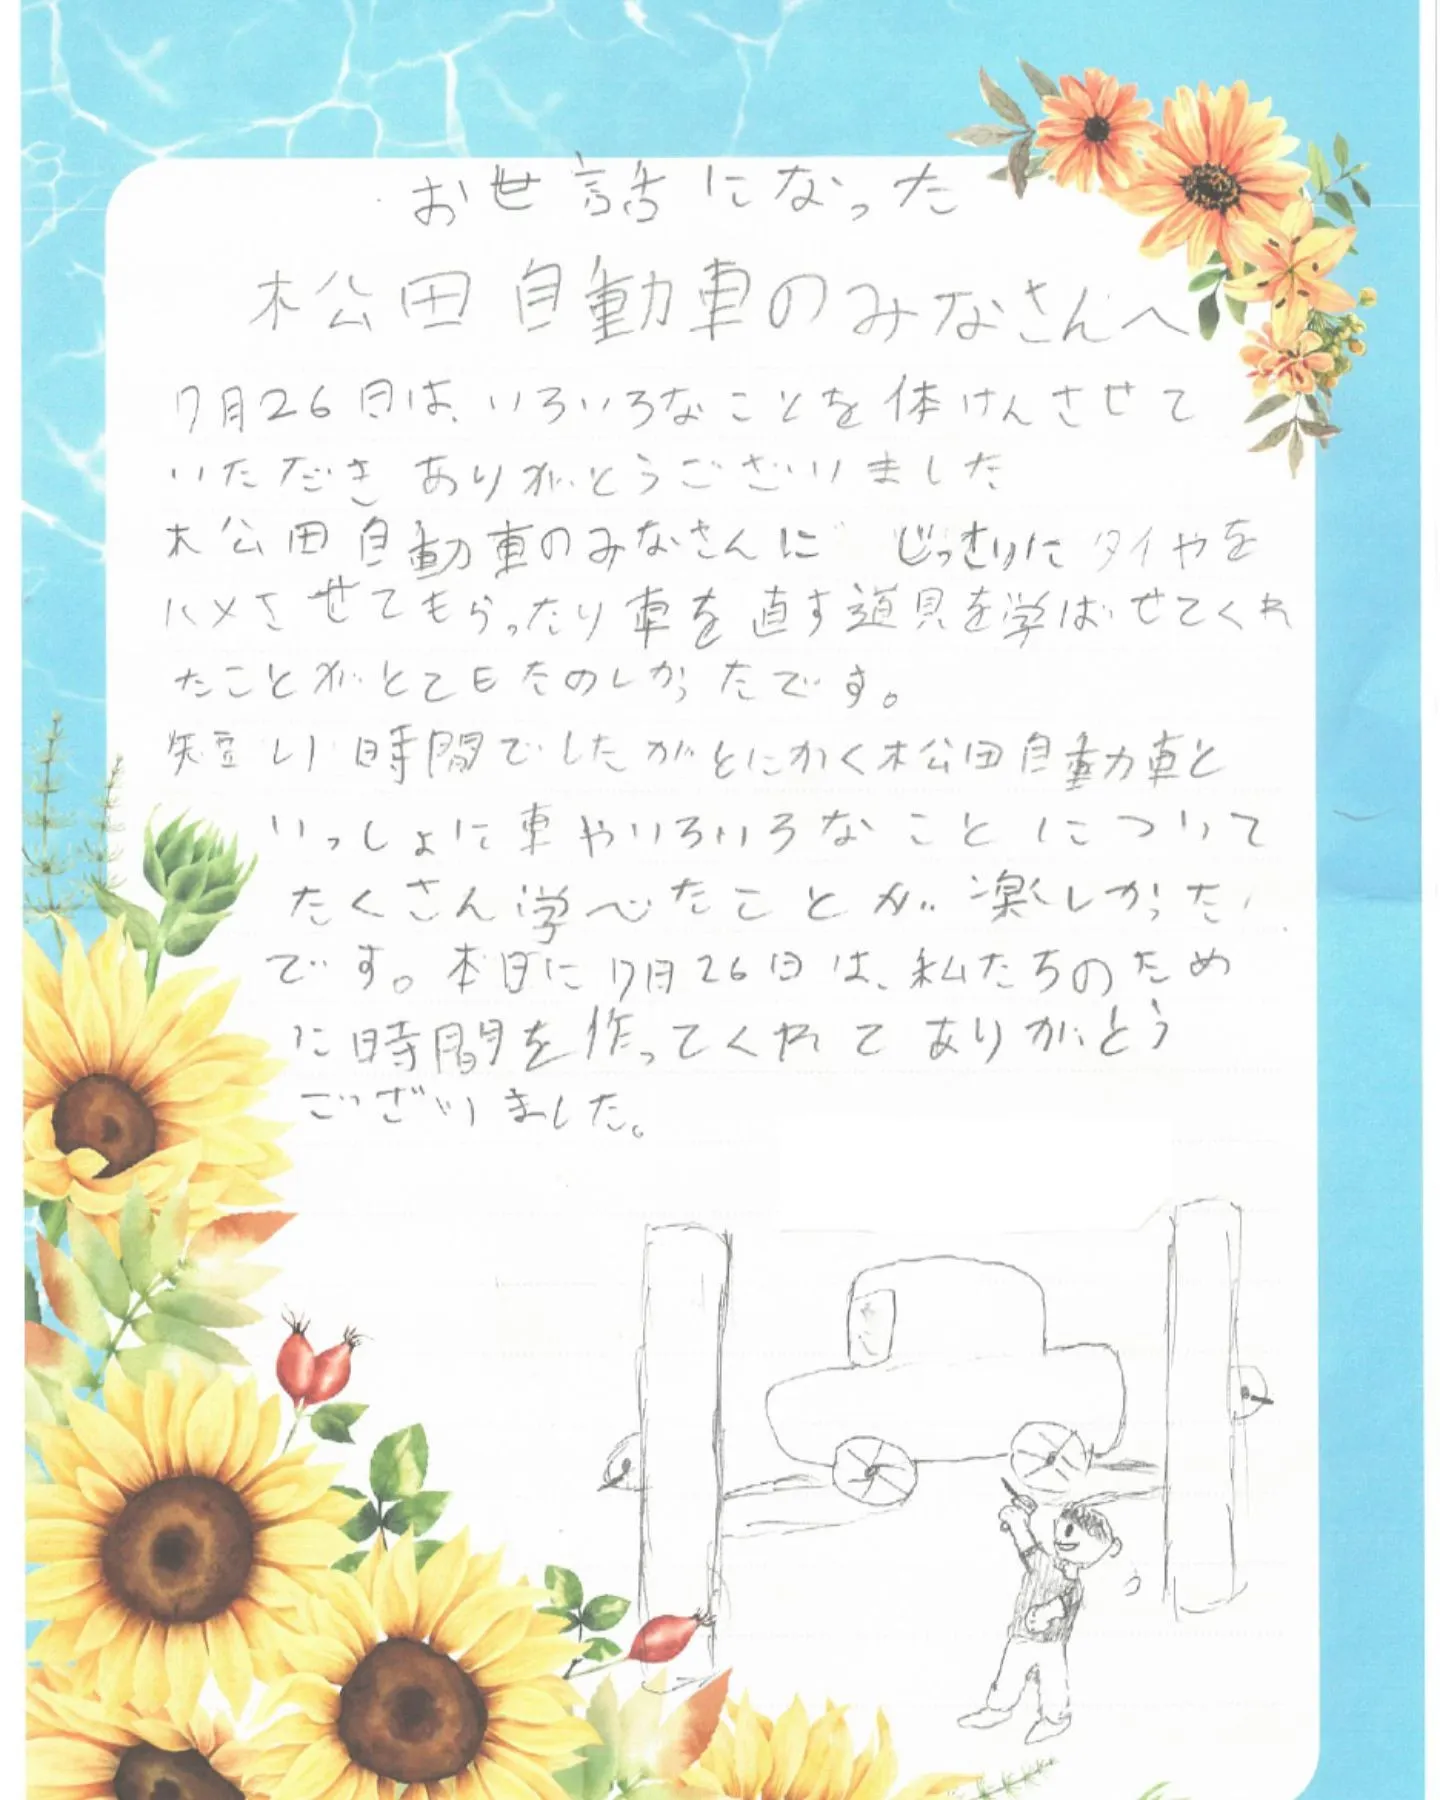 お世話になった
松田自動車のみなさんへ
7月26日は、いろいろなことを体けんさせて
いただきありがとうございました
松田自動車のみなさんに じっさいにタイヤを
ハメさせてもらったり車を直す道具を学ばせてくれ
たことがとてもたのしかったです。
短い時間でしたがとにかく松田自動車と
いっしょに車やいろいろなことについて
たくさん学べたことが楽しかった
です。本日に7月26日は、私たちのため
に時間を作ってくれてありがとう
ございました。